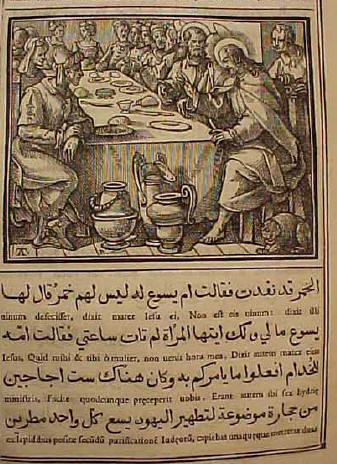 الخمر قد نفدت فقالت ام يسوع له ليس لهم خمر قال لها
uinum defecisset, dixit mater Iesu ei, Non est eis uinum: dixit illi
يسوع ما لي ولك ايتها المرأة لم تات ساعتي فقالت امه
Iesus, Quid mihi & tibi ò mulier, non uenit hora mea. Dixit autem mater eius
للخدام افعلوا ما يامركم به وكان هناك ست اجاجين
ministris, Facite quodcunque præceperit uobis. Erant autem ibi sex hydriæ
من حجارة موضوعة لتطهير اليهون يسع كل واحد مطرين
ex lapidibus positæ secūdū purificationē Iudæorū, capiebat unaquæque metretas duas